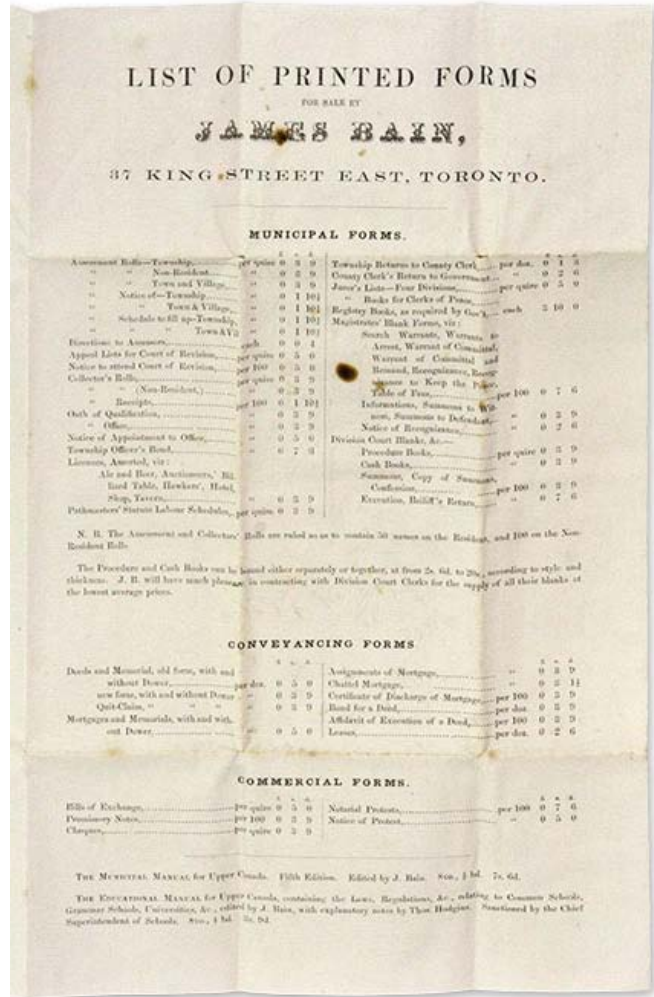 LIST OF PRINTED FORMS
FOR SALE BY
JAMES BAIN,
37 KING STREET EAST, TORONTO.
MUNICIPAL FORMS.
£ s. d.
Assessment Rolls—Township, per quire 0 3 9
" " Non-Resident " 0 3 9
" " Town and Village, " 0 3 9
" Notice of—Township " 0 1 10½
" " Town & Village, " 0 1 10½
" Schedule to fill up—Township, " 0 1 10½
" " " Town & Vil " 0 1 10½
Directions to Assessors, each 0 0 4
Appeal Lists for Court of Revision, per quire 0 5 0
Notice to attend Court of Revision, per 100 0 5 0
Collector's Rolls, per quire 0 3 9
" " (Non-Resident,) " 0 3 9
" Receipts, per 100 0 1 10½
Oath of Qualification, " 0 3 9
" Office, " 0 3 9
Notice of Appointment to Office, " 0 5 0
Township Officer's Bond, " 0 7 6
Licences, Assorted, viz :
Ale and Beer, Auctioneers,' Bil.
liard Table, Hawkers', Hotel,
Shop, Tavern, " 0 3 9
Pathmasters' Statute Labour Schedules, per quire 0 3 9
£ s. d.
Township Returns to County Clerk, per doz. 0 1 3
County Clerk's Return to Government " 0 2 6
Juror's Lists—Four Divisions, per quire 0 5 0
" Books for Clerks of Peace,
Registry Books, as required by Gov't, each 3 10 0
Magistrates' Blank Forms, viz :
Search Warrants, Warrants to
Arrest, Warrant of Committal,
Warrant of Committal and
Remand, Recognizance, Recog-
nizance to Keep the Peace,
Table of Fees, per 100 0 7 6
Informations, Summons to Wit-
ness, Summons to Defendant, " 0 3 9
Notice of Recognizance, " 0 2 6
Division Court Blanks, &c.—
Procedure Books, per quire 0 3 9
Cash Books, " 0 3 9
Summons, Copy of Summons,
Confession, per 100 0 3 9
Execution, Bailiff's Return, " 0 7 6
N. B. The Assessment and Collectors' Rolls are ruled so as to contain 50 names on the Resident, and 100 on the Non-
Resident Rolls
The Procedure and Cash Books can be bound either separately or together, at from 2s. 6d. to 20s., according to style and
thickness. J. B. will have much pleasure in contracting with Division Court Clerks for the supply of all their blanks at
the lowest average prices.
CONVEYANCING FORMS
£ s. d.
Deeds and Memorial, old form, with and
without Dower, per doz. 0 5 0
new form, with and without Dower " 0 3 9
Quit-Claim, " " " " 0 3 9
Mortgages and Memorials, with and with-
out Dower, " 0 5 0
£ s. d.
Assignments of Mortgage, " 0 3 9
Chattel Mortgage, " 0 3 1½
Certificate of Discharge of Mortgage, per 100 0 3 9
Bond for a Deed, per doz. 0 3 9
Affidavit of Execution of a Deed, per 100 0 3 9
Leases, per doz. 0 2 6
COMMERCIAL FORMS.
£ s. d.
Bills of Exchange, per quire 0 5 0
Promissory Notes, per 100 0 3 9
Cheques, per quire 0 3 9
£ s. d.
Notarial Protests, per 100 0 7 6
Notice of Protest, " 0 5 0
THE MUNICIPAL MANUAL for Upper Canada. Fifth Edition. Edited by J. Bain. 8vo., ½ bd. 7s. 6d.
THE EDUCATIONAL MANUAL for Upper Canada, containing the Laws, Regulations, &c., relating to Common Schools,
Grammar Schools, Universities, &c., edited by J. Bain, with explanatory notes by Thos. Hodgins. Sanctioned by the Chief
Superintendent of Schools. 8vo., ½ bd. 3s. 9d.